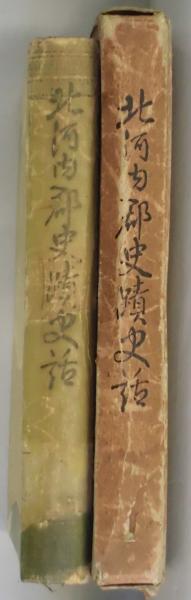 北河内郡史蹟史話
北河内郡史蹟史話